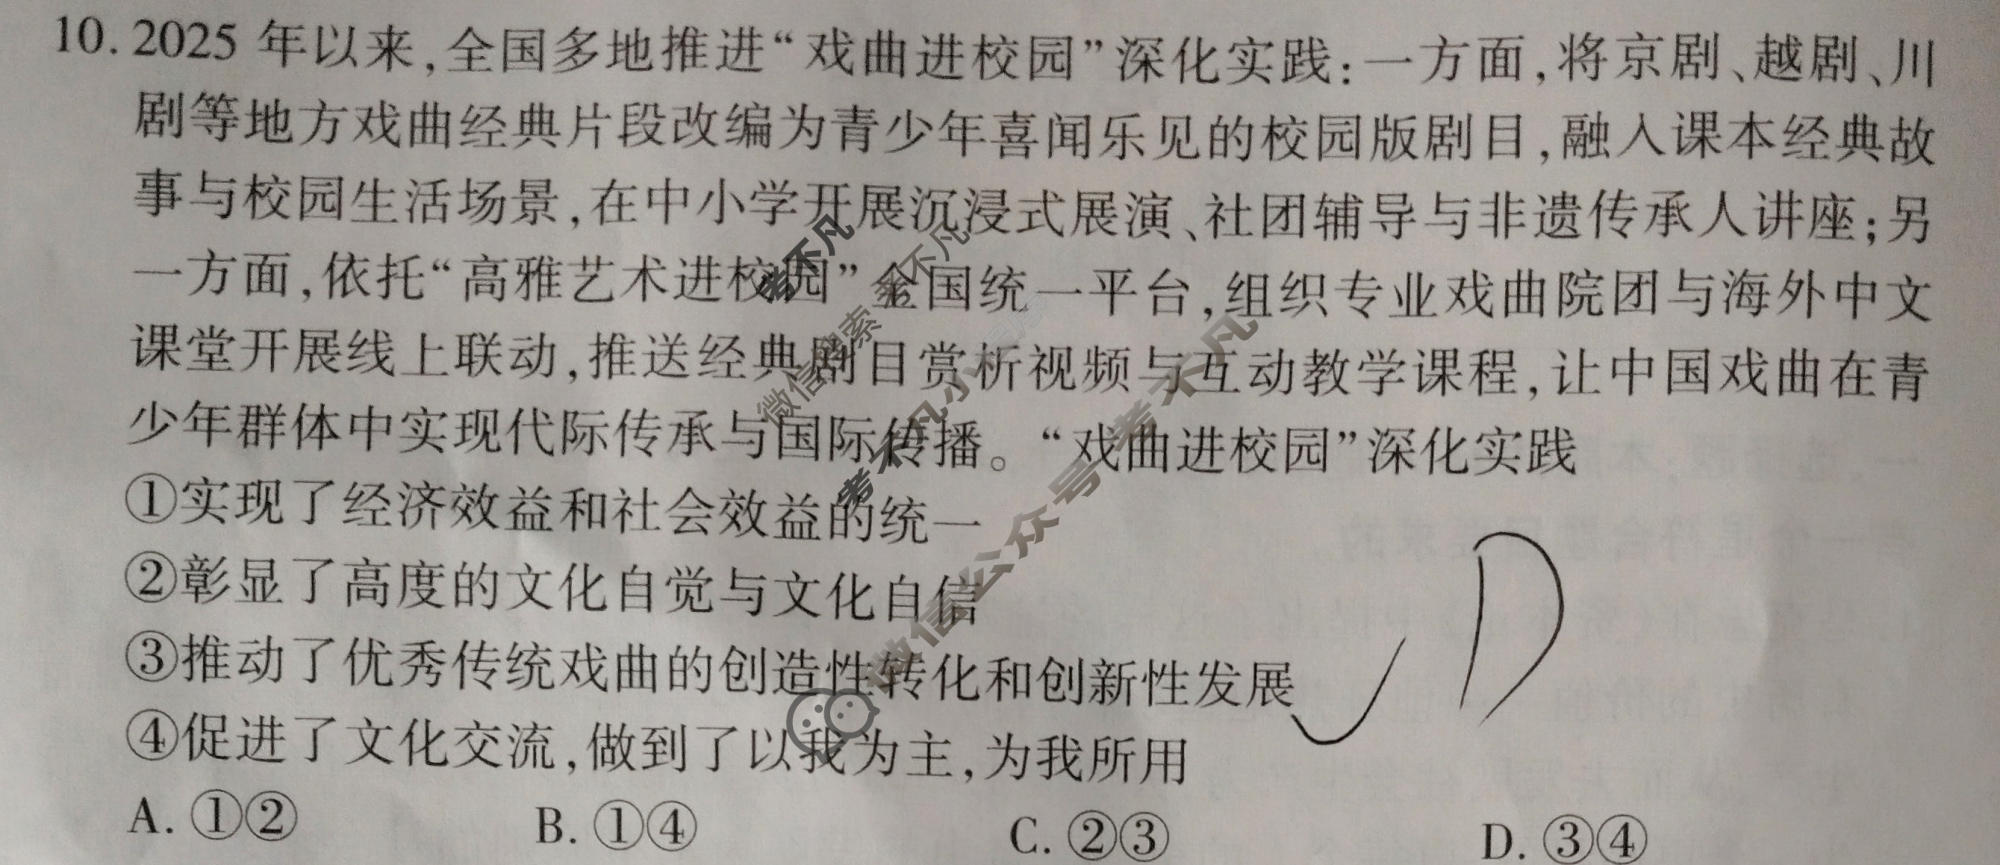 10. 2025 年以来,全国多地推进“戏曲进校园”深化实践:一方面,将京剧、越剧、川
剧等地方戏曲经典片段改编为青少年喜闻乐见的校园版剧目,融入课本经典故
事与校园生活场景,在中小学开展沉浸式展演、社团辅导与非遗传承人讲座;另
一方面,依托“高雅艺术进校园”全国统一平台,组织专业戏曲院团与海外中文
课堂开展线上联动,推送经典剧目赏析视频与互动教学课程,让中国戏曲在青
少年群体中实现代际传承与国际传播。“戏曲进校园”深化实践
①实现了经济效益和社会效益的统一
②彰显了高度的文化自觉与文化自信
③推动了优秀传统戏曲的创造性转化和创新性发展
④促进了文化交流,做到了以我为主,为我所用
A. ①② B. ①④ C. ②③ D. ③④
D
微信公众号 考不凡